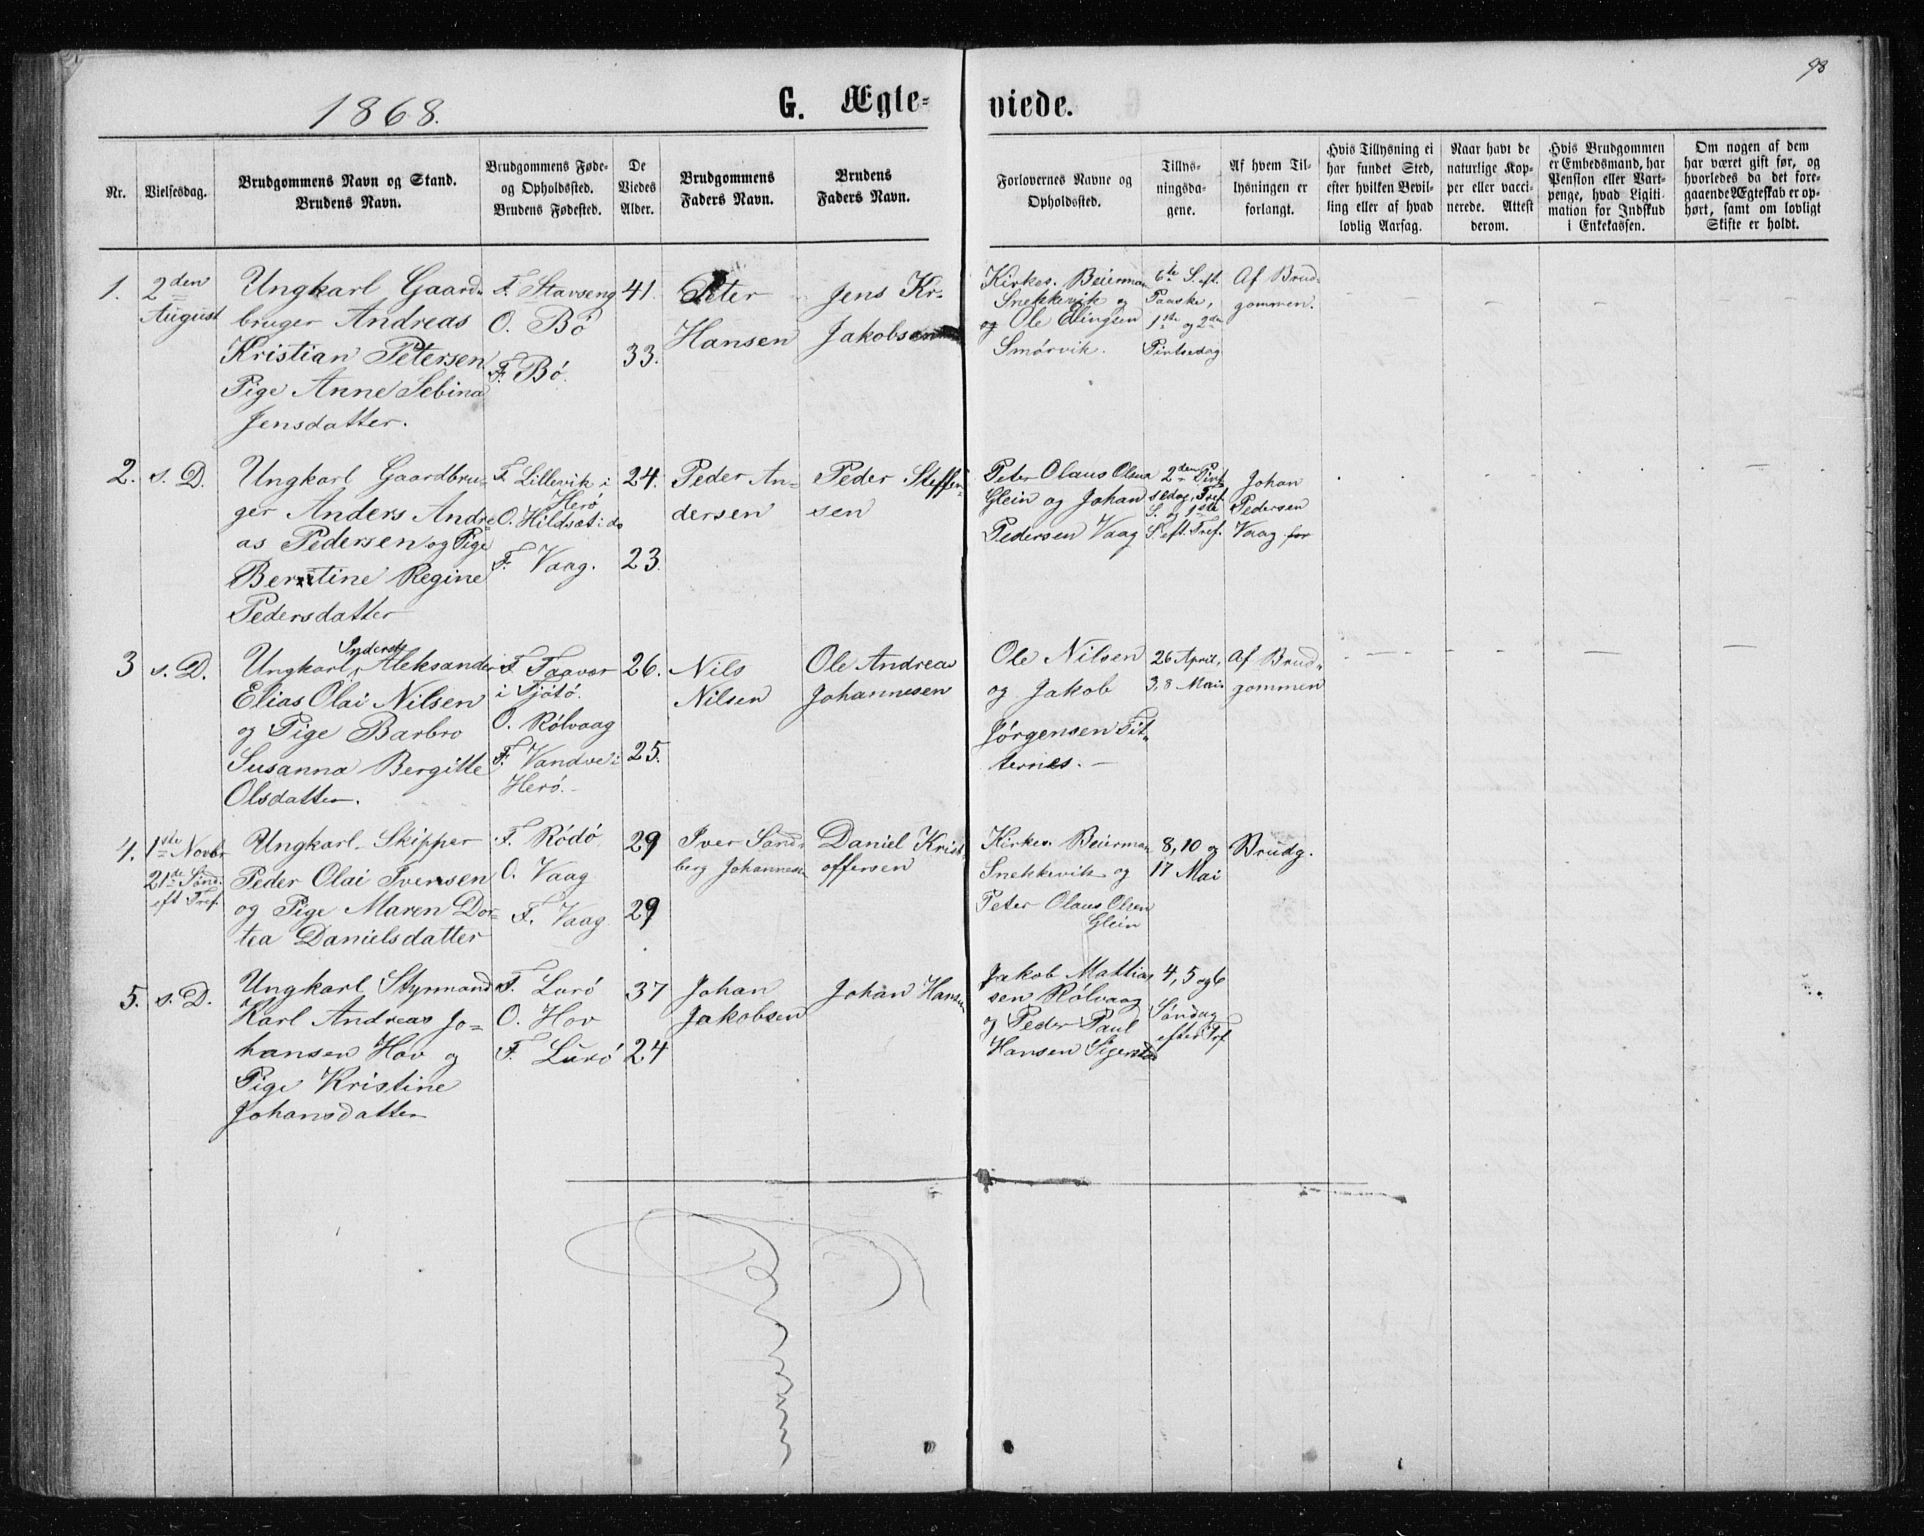 98
1868.
G. Ægte-
viede.
Nr.
Vielsesdag.
Brudgommens Navn og Stand.
Brudens Navn.
Brudgommens Føde-
og Opholdssted.
Brudens Fødested.
De
Viedes
Alder.
Brudgommens
Faders Navn.
Brudens
Faders Navn.
Forlovernes Navne og
Opholdssted.
Tillys-
ningsda-
gene.
Af hvem Til-
lysningen er
forlangt.
Hvis Tillysning ei
har fundet Sted,
efter hvilken Bevil-
ling eller af hvad
lovlig Aarsag.
Naar havt de
naturlige Kop-
per eller vacci-
nerede. Attest
derom.
Hvis Brudgommen
er Embedsmand, har
Pension eller Vart-
penge, hvad Ligiti-
mation for Indskud
i Enkekassen.
Om nogen af dem
har været gift før, og
hvorledes da det fore-
gaaende Ægteskab er op-
hørt, samt om lovligt
Skifte er holdt.
1.
2den
August
Ungkarl Gaard-
bruger Andreas
Kristian Petersen
Pige Anne Sebina
Jensdatter.
F. Stavseng
O. Bö
F. Bö.
41.
33.
Peter
Hansen
Jens Kr.
Jakobsen
Kirkes. Beierman
Snekkevik og
og Ole Elingsen
Smörvik.
6te S. eft.
Paaske,
1ste og 2den
Pintsedag
Af Brud-
gommen.
2.
s. D.
Ungkarl Gaardbru-
ger Anders Andre-
as Pedersen og Pige
Berntine Regine
Pedersdatter
F. Lillevik i
Herö
O. Hildset i do
F. Vaag.
24.
23.
Peder An-
dersen
Peder Steffen-
sen
Peter Olaus Olsen
Glein og Johan
Pedersen Vaag
2den Pint
sedag, Tref.
S. og 1ste
S. eft. Tref.
Johan
Pedersen
Vaag for
3
s. D.
Inderst
Ungkarl Aleksander
Elias Olai Nilsen
og Pige Barbro
Susanna Bergitte
Olsdatter.
F. Taavær
i Tjötö.
O. Rölvaag
F. Vandve i
Herö.
26.
25.
Nils
Nilsen
Ole Andreas
Johannesen
Ole Nilsen
og Jakob
Jörgensen Tit-
ternes.
26 April,
3, 8 Mai
Af Brud-
gommen
4.
1ste Novbr
21de Sönd.
eft Tref.
Ungkarl Skipper
Peder Olai Iversen
og Pige Maren Dor-
tea Danielsdatter
F. Rödö
O. Vaag
F. Vaag
29
29
Iver Sand-
berg Johannesen
Daniel Krist-
offersen
Kirkes. Beierman
Snekkevik og
Peter Olaus Olsen
Glein
8, 10 og
17 Mai
Brudg.
5.
s. D.
Ungkarl Styrmand
Karl Andreas Jo-
hansen Hov og
Pige Kristine
Johansdatter
F. Lurö
O. Hov
F. Lurö
37
24
Johan
Jakobsen
Johan Hansen
Jakob Mattias
sen Rölvaag
og Peder Paul
Hansen
4, 5 og 6
Söndag
efter Trf